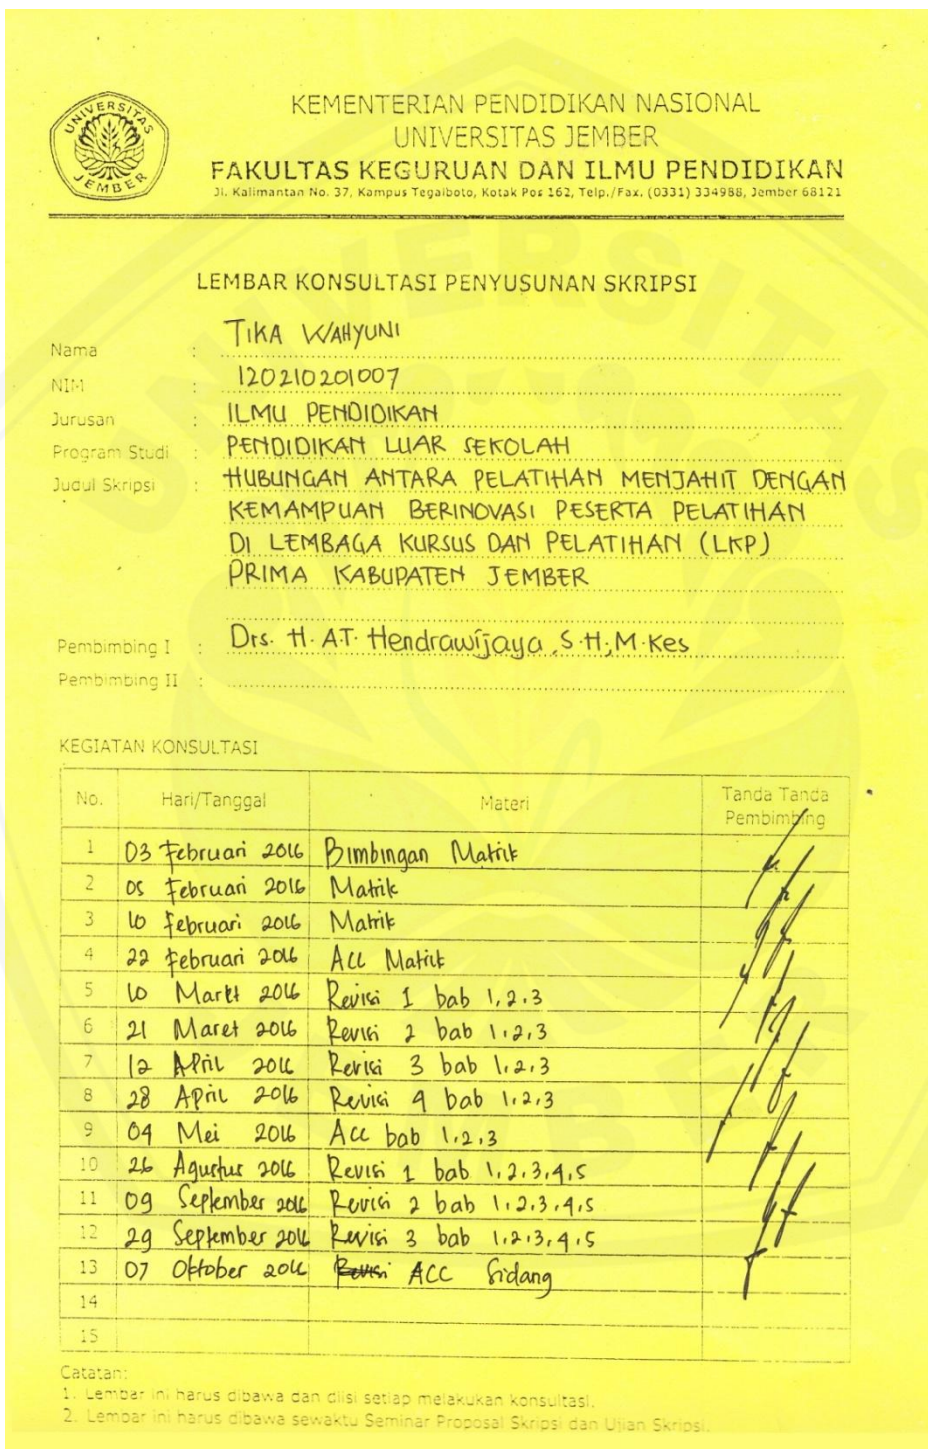 UNIVERSITAS JEMBER
KEMENTERIAN PENDIDIKAN NASIONAL
UNIVERSITAS JEMBER
FAKULTAS KEGURUAN DAN ILMU PENDIDIKAN
Jl. Kalimantan No. 37, Kampus Tegalboto, Kotak Pos 162, Telp./Fax. (0331) 334988, Jember 68121
LEMBAR KONSULTASI PENYUSUNAN SKRIPSI
Nama : TIKA WAHYUNI
NIM : 120210201007
Jurusan : ILMU PENDIDIKAN
Program Studi : PENDIDIKAN LUAR SEKOLAH
Judul Skripsi : HUBUNGAN ANTARA PELATIHAN MENJAHIT DENGAN
KEMAMPUAN BERINOVASI PESERTA PELATIHAN
DI LEMBAGA KURSUS DAN PELATIHAN (LKP)
PRIMA KABUPATEN JEMBER
Pembimbing I : Drs. H. A.T. Hendrawijaya, S.H, M.Kes
Pembimbing II :
KEGIATAN KONSULTASI
No. Hari/Tanggal Materi Tanda Tanda
Pembimbing
1 03 Februari 2016 Bimbingan Matrik
2 05 Februari 2016 Matrik
3 10 Februari 2016 Matrik
4 22 Februari 2016 Acc Matrik
5 10 Maret 2016 Revisi 1 bab 1,2,3
6 21 Maret 2016 Revisi 2 bab 1,2,3
7 12 April 2016 Revisi 3 bab 1,2,3
8 28 April 2016 Revisi 4 bab 1,2,3
9 04 Mei 2016 Acc bab 1,2,3
10 26 Agustus 2016 Revisi 1 bab 1,2,3,4,5
11 09 September 2016 Revisi 2 bab 1,2,3,4,5
12 29 September 2016 Revisi 3 bab 1,2,3,4,5
13 07 Oktober 2016 Revisi ACC Sidang
14
15
Catatan:
1. Lembar ini harus dibawa dan diisi setiap melakukan konsultasi.
2. Lembar ini harus dibawa sewaktu Seminar Proposal Skripsi dan Ujian Skripsi.